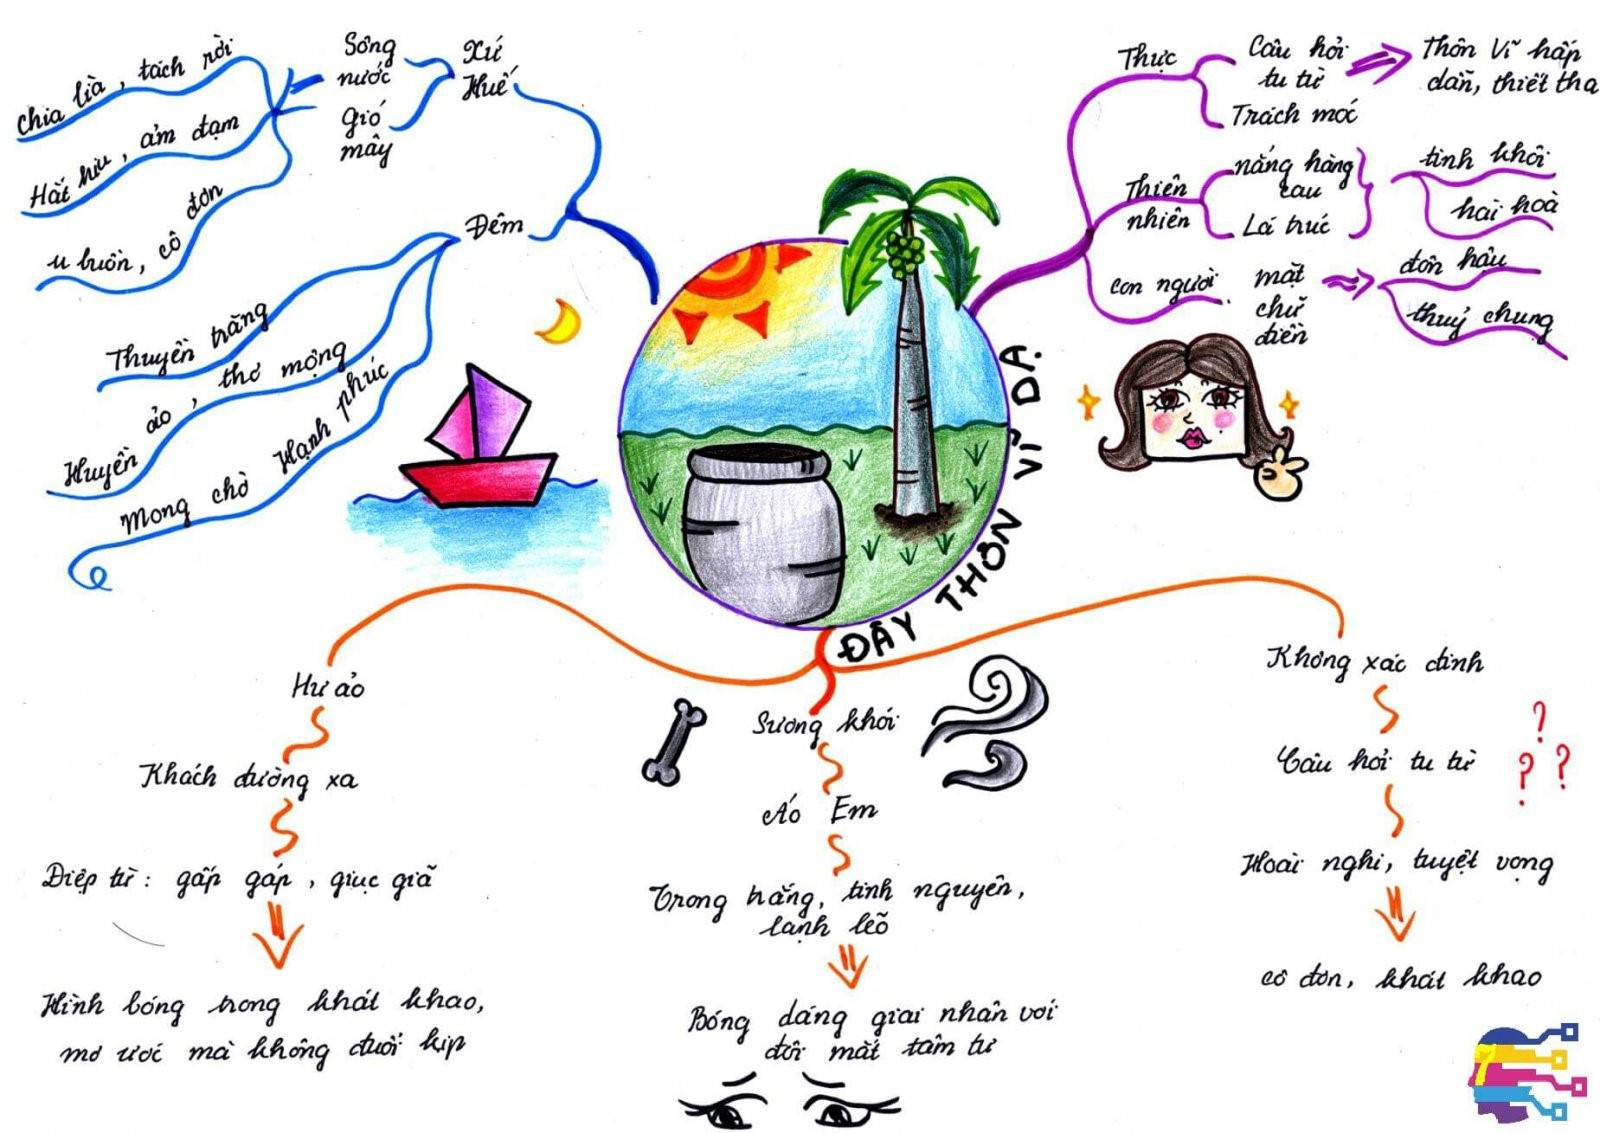 ĐÂY THÔN VĨ DẠ
Thực
Câu hỏi
tu từ
Thôn Vĩ hấp
dẫn, thiết tha
Trách móc
Thiên
nhiên
nắng hàng
cau
Lá trúc
tinh khôi
hài hoà
con người
mặt
chữ
điền
đôn hậu
thuỷ chung
Xứ
Huế
Sông
nước
gió
mây
chia lìa, tách rời
Hắt hiu, ảm đạm
u buồn, cô đơn
Đêm
Thuyền trăng
Huyền ảo, thơ mộng
Mong chờ hạnh phúc
Hư ảo
Khách đường xa
Điệp từ: gấp gáp, giục giã
Hình bóng trong khát khao,
mơ ước mà không đuổi kịp
Sương khói
Áo Em
Trong trắng, tinh nguyên,
lạnh lẽo
Bóng dáng giai nhân với
đôi mắt tâm tư
Không xác định
Câu hỏi tu từ
? ? ?
Hoài nghi, tuyệt vọng
cô đơn, khát khao